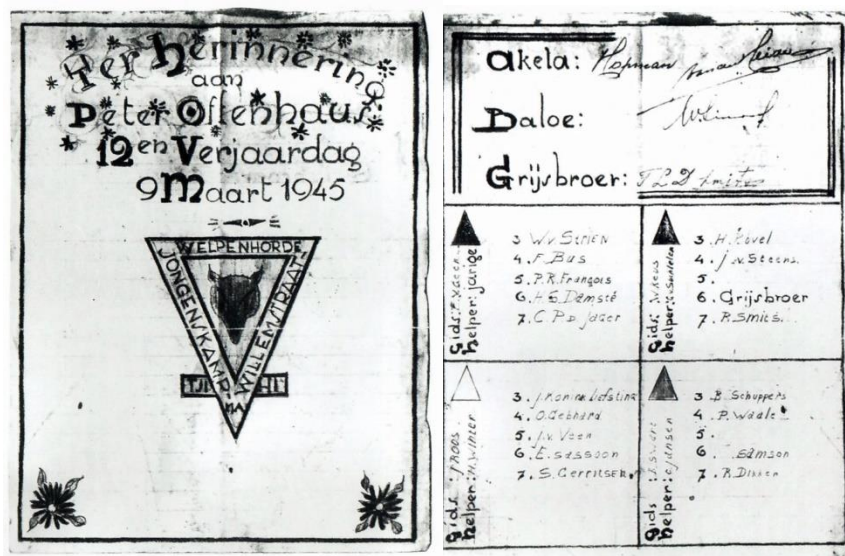 Ter herinnering
aan
Peter Offenhaus
12en Verjaardag
9 Maart 1945
WELPENHORDE
JONGENSKAMP
WILLEMSTRAAT
TJIMAHI
Akela: Hopman
Baloe:
Grijsbroer: T L D Smits
Gids:
helper: jarige
3 W.v. Strien
4. F. Bus
5. P.R. François
6. H.S. Damsté
7. C. P.D. Jager
Gids: W. Koos
helper:
3. H. Hovel
4. J. v. Steens
5.
6. Grijsbroer
7. R. Smits.
Gids: J ROOS
helper: H. Winter
3. J. Konink Liefsting
4. O. Gebhard
5. J.v. Veen
6. E. Sassoon
7. S. Gerritsen.
Gids: J. Swart
helper: C. Jansen
3 B. Schuppers
4. P. Waale
5.
6. Samson
7. R. Dikken